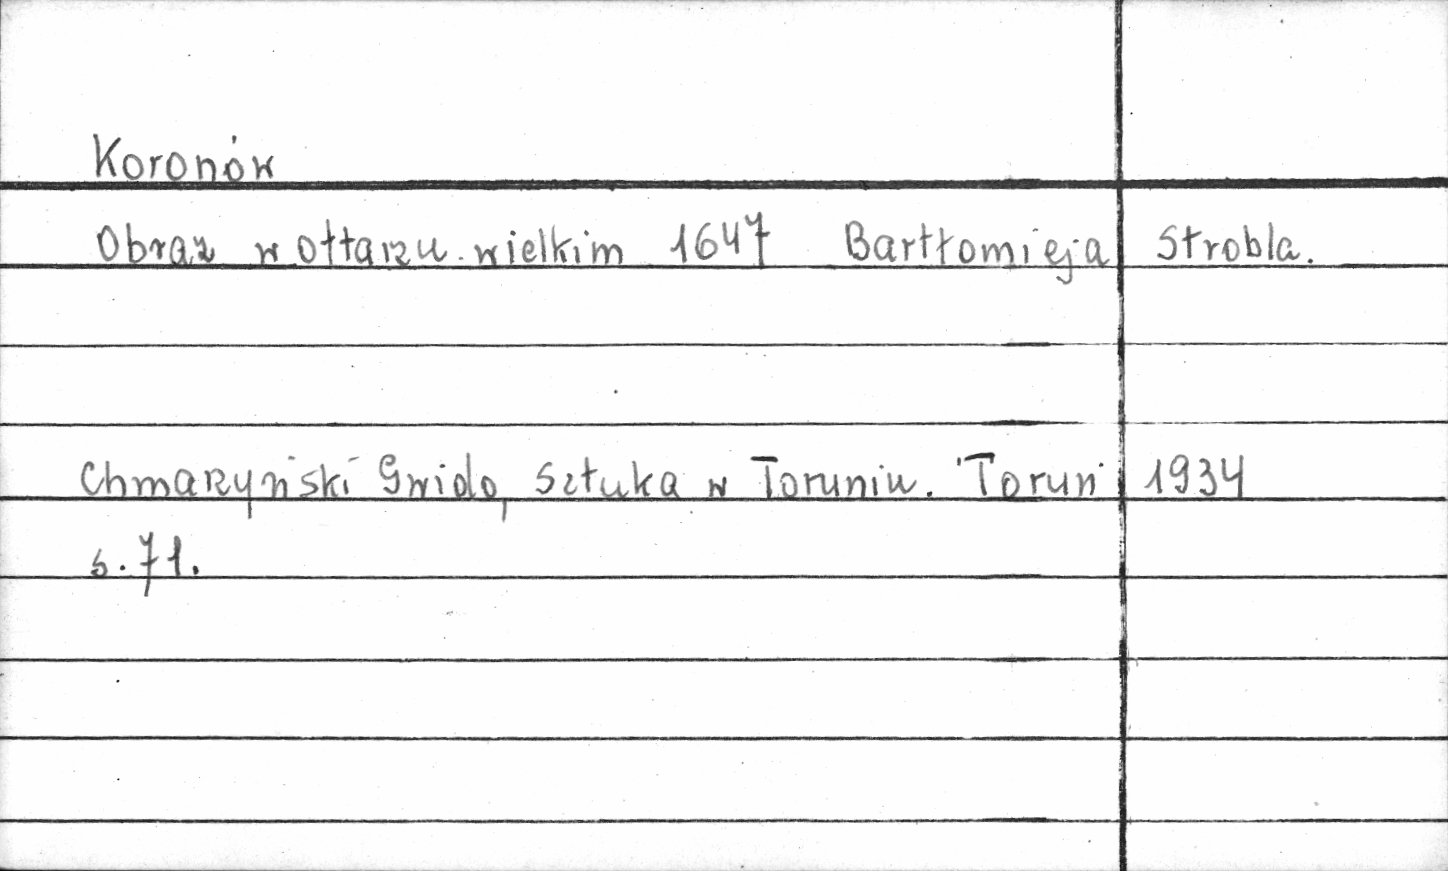 Koronów
Obraz w ołtarzu wielkim 1647 Bartłomieja Strobla.
Chmarzyński Gwido, Sztuka w Toruniu. Toruń 1934
s. 71.